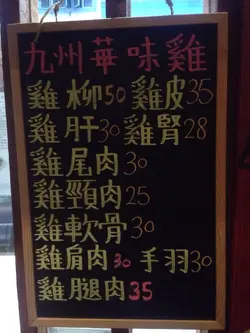 九州華味雞
雞柳50 雞皮35
雞肝30 雞腎28
雞尾肉30
雞頸肉25
雞軟骨30
雞肩肉30 手羽30
雞腿肉35